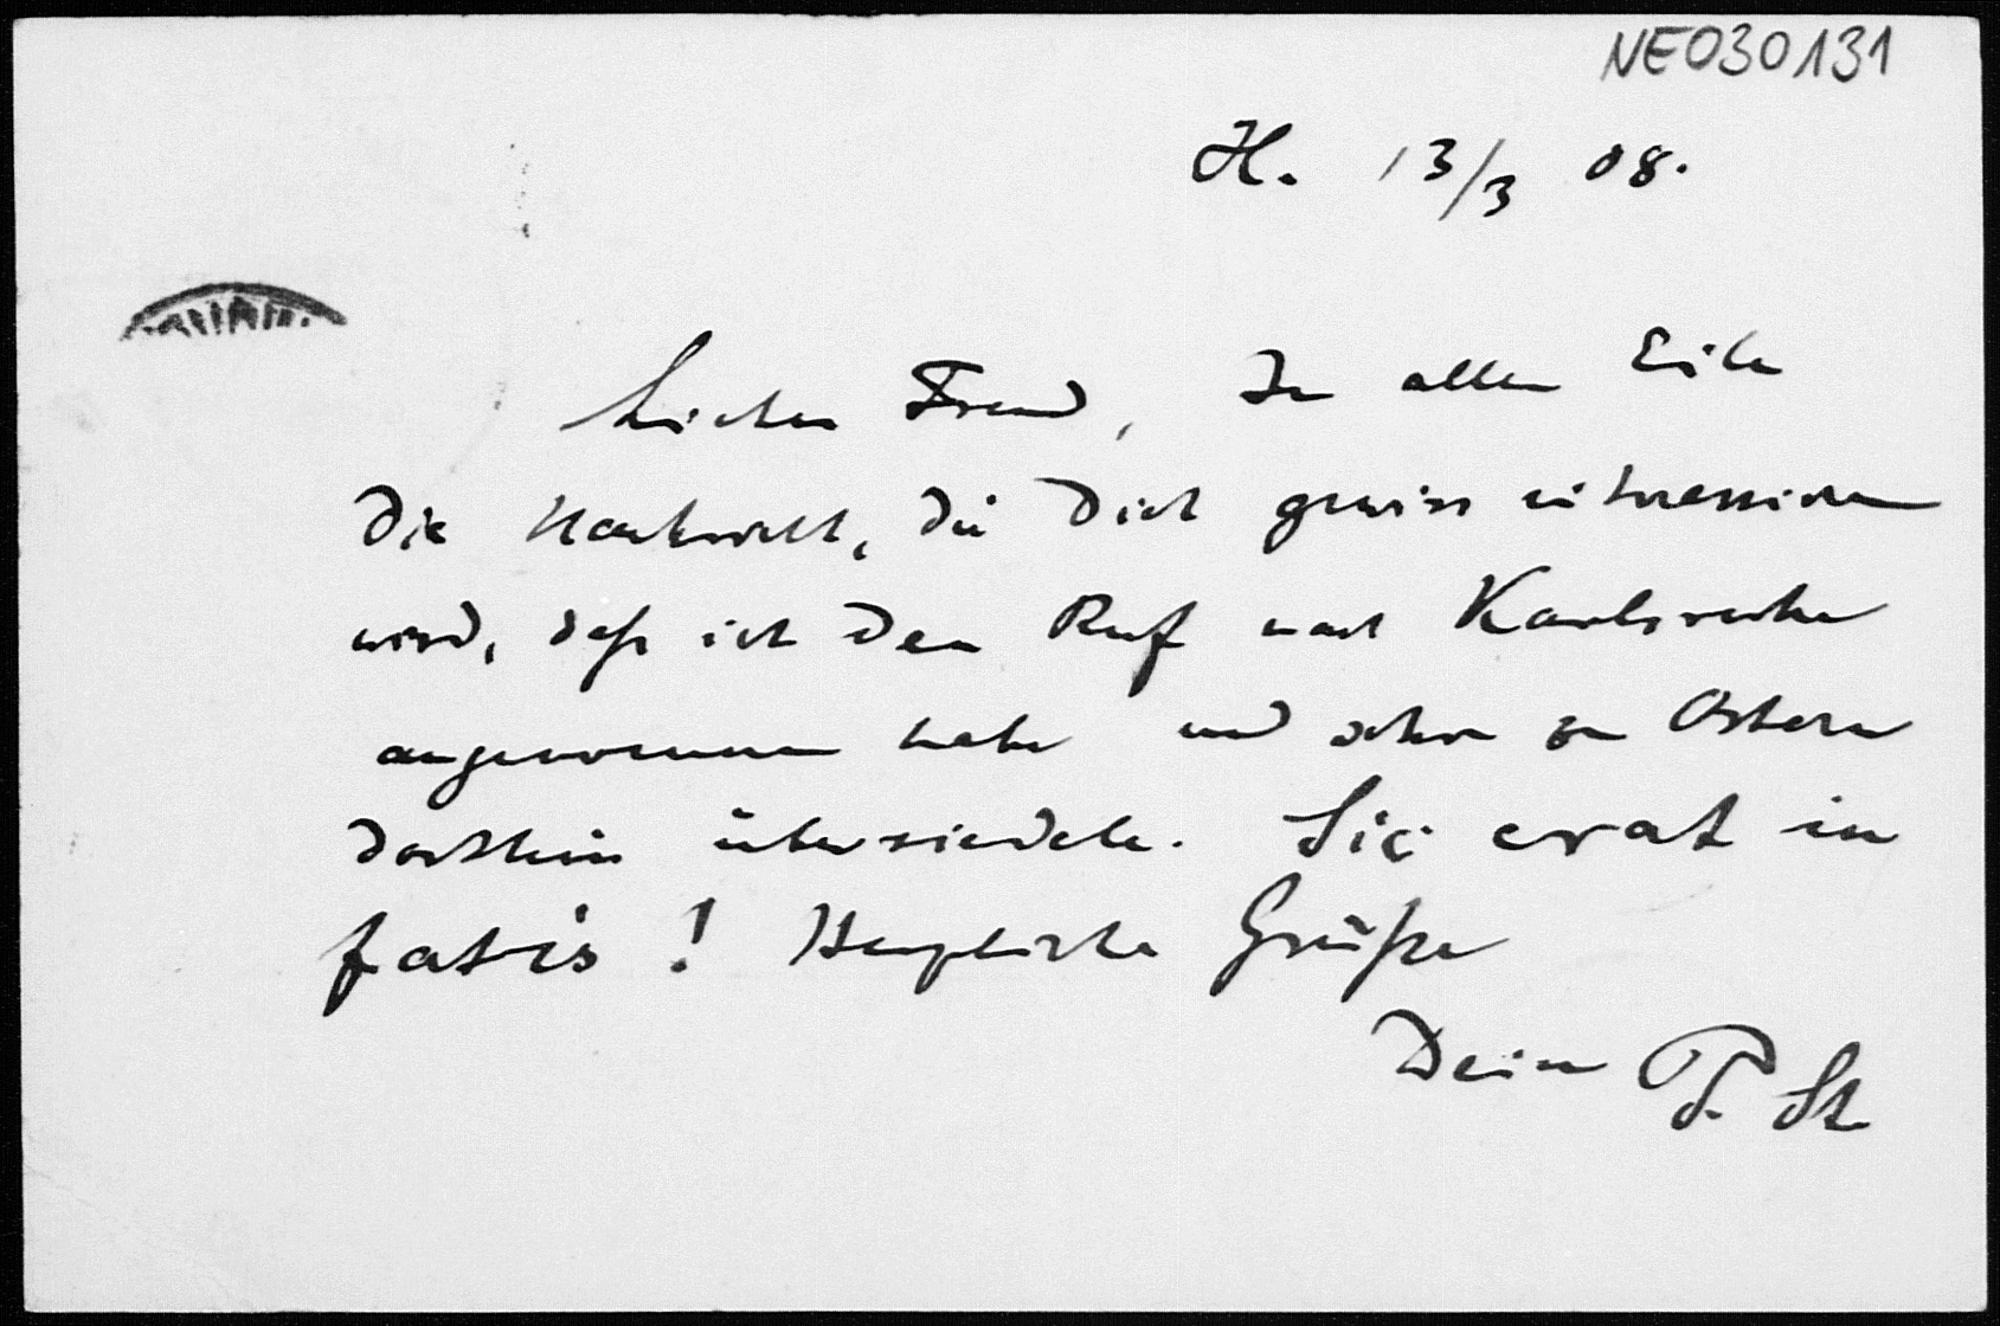 NE030131
H. 13/3 08.
Lieber Freund, In aller Eile
die Nachricht, die Dich gewiss interessieren
wird, daß ich den Ruf nach Karlsruhe
angenommen habe und schon zu Ostern
dorthin übersiedele. Sic erat in
fatis! Herzliche Grüße
Dein P. St